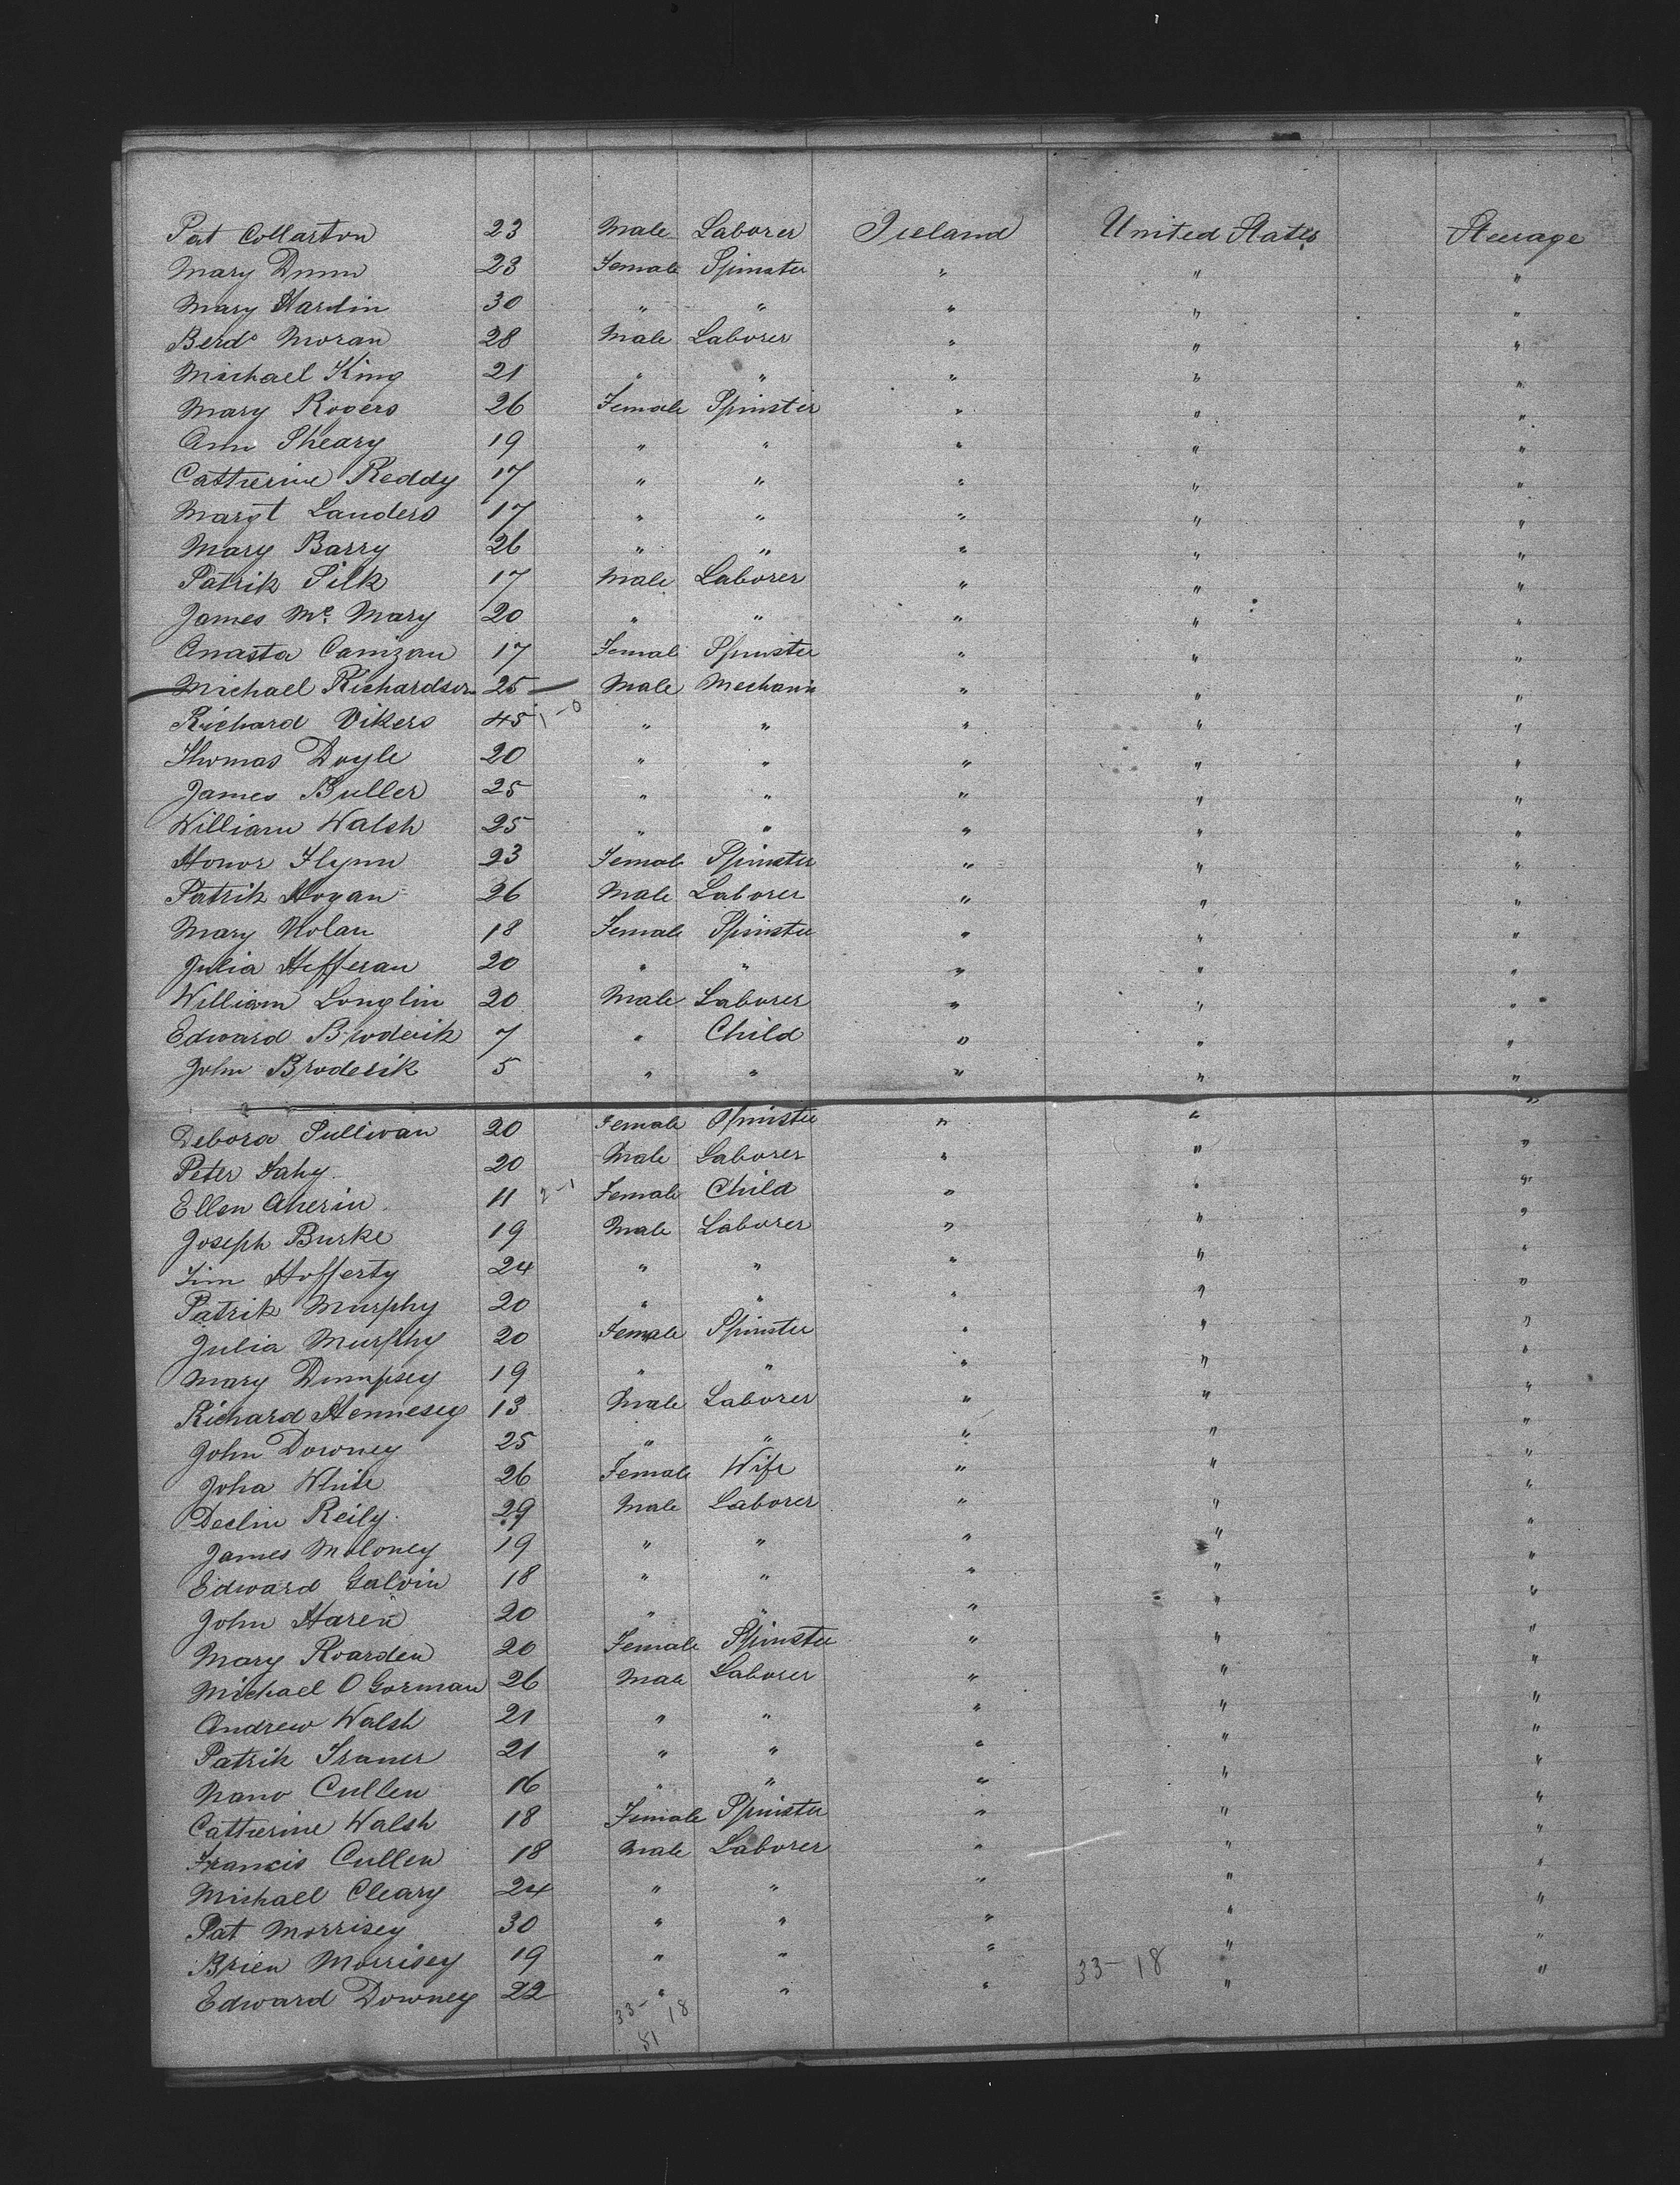 Pat Collarton 23 Male Laborer Ireland United States Steerage
Mary Dunn 23 Female Spinster " " "
Mary Hardin 30 " " " " "
Berd Moran 28 Male Laborer " " "
Michael King 21 " " " " "
Mary Rogers 26 Female Spinster " " "
Ann Sheary 19 " " " " "
Catherine Reddy 17 " " " " "
Margt Landers 17 " " " " "
Mary Barry 26 " " " " "
Patrik Silk 17 Male Laborer " " "
James Mc Mary 20 " " " " "
Anasta Canizan 17 Female Spinster " " "
Michael Richardson 25 Male Mechanic " " "
Richard Vikers 45 1-0 " " " " "
Thomas Doyle 20 " " " " "
James Buller 25 " " " " "
William Walsh 25 " " " " "
Honor Flynn 23 Female Spinster " " "
Patrik Hogan 26 Male Laborer " " "
Mary Nolan 18 Female Spinster " " "
Julia Hefferan 20 " " " " "
William Longlin 20 Male Laborer " " "
Edward Broderik 7 " Child " " "
John Broderik 5 " " " " "
Debora Sullivan 20 Female Spinster " " "
Peter Fahy 20 Male Laborer " " "
Ellen Aherin 11 2-1 Female Child " " "
Joseph Burke 19 Male Laborer " " "
Tim Hofferty 24 " " " " "
Patrik Murphy 20 " " " " "
Julia Murphy 20 Female Spinster " " "
Mary Dumpsey 19 " " " " "
Richard Hennesey 13 Male Laborer " " "
John Downey 25 " " " " "
Joha White 26 Female Wife " " "
Declin Reily 29 Male Laborer " " "
James Moloney 19 " " " " "
Edward Galvin 18 " " " " "
John Haren 20 " " " " "
Mary Roarden 20 Female Spinster " " "
Michael O Gorman 26 Male Laborer " " "
Andrew Walsh 21 " " " " "
Patrik Traner 21 " " " " "
Nano Cullen 16 " " " " "
Catherine Walsh 18 Female Spinster " " "
Francis Cullen 18 Male Laborer " " "
Michael Cleary 24 " " " " "
Pat Morrisey 30 " " " " "
Brien Morrisey 19 " " " " "
Edward Downey 22 " " " 33-18 " "
33-18
51